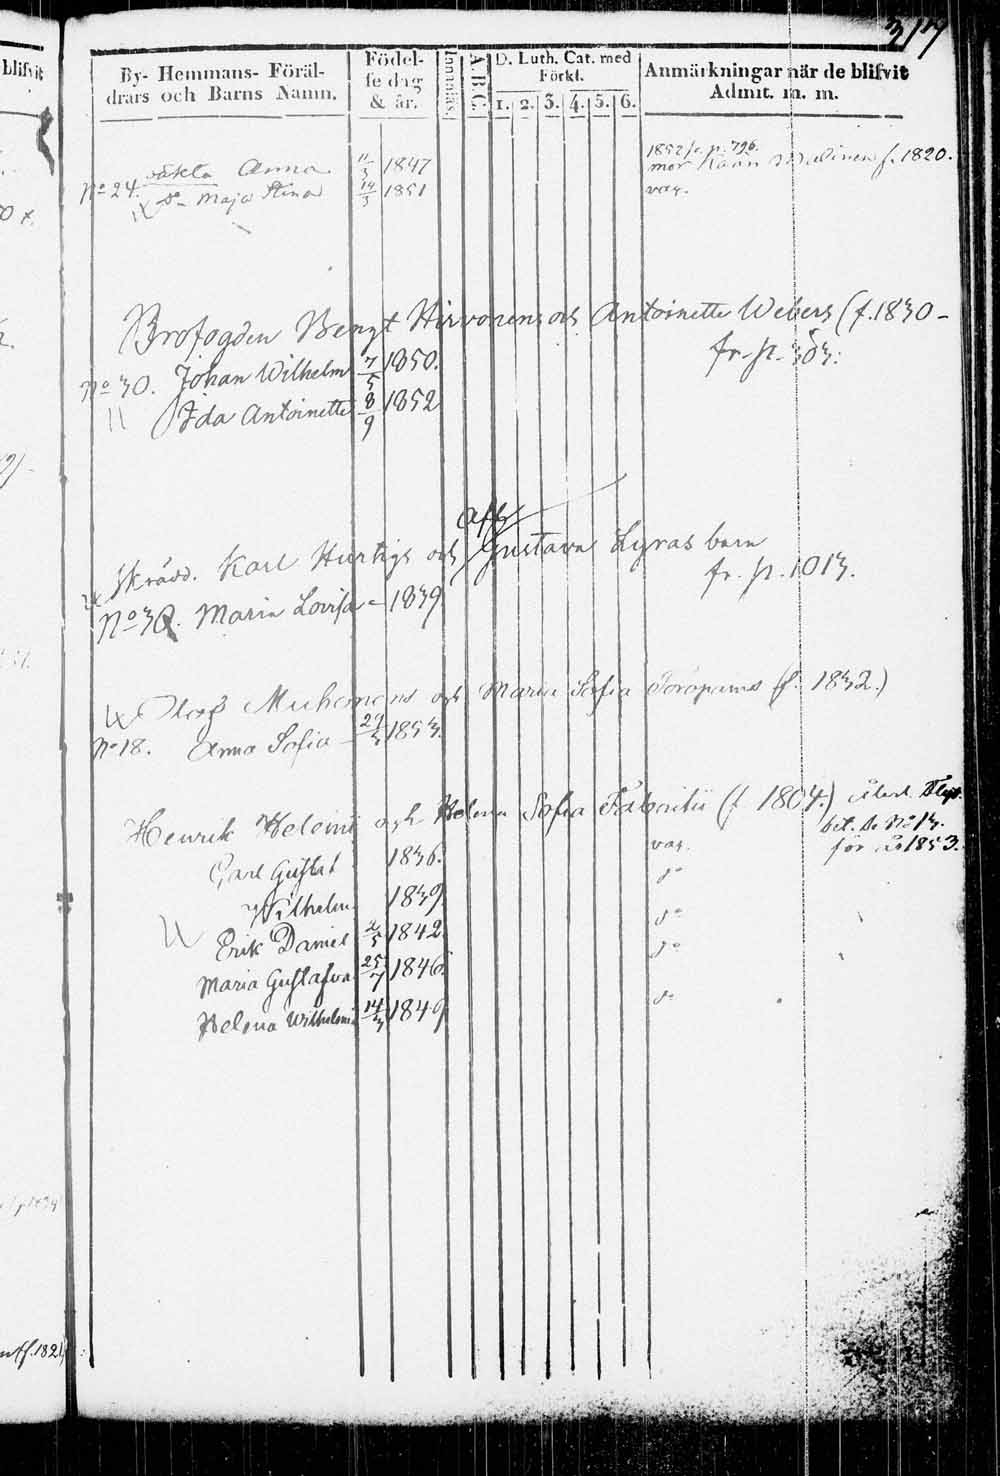 317
By- Hemmans- Föräl-
drars och Barns Namn.
Födel-
se dag
& år.
Innanläs.
A B C.
D. Luth. Cat. med
Förkl.
1. 2. 3. 4. 5. 6.
Anmärkningar när de blifvit
Admit. m. m.
blifvit
1852 fr. p. 796.
oäkta Anna 11/3 1847 mor Kaan Malinen f. 1820.
No 24. Do Maja Stina 14/3 1851 vag.
Brofogden Bengt Hirvonens och Antoinette Webers (f. 1830 -
fr. p. 303:
No 30. Johan Wilhelm 7/5 1850.
Ida Antoinette 8/9 1852
Skrädd. Karl Hurtigs och Gustava Lyras barn
fr. p. 1013.
No 30. Maria Lovisa - 1839
Muhonens och Maria Sofia Toropains (f. 1832.)
No 18. Anna Sofia 1853.
Henrik Helenii och Helena Sofia Faboritii (f 1804.)
bet. No 13.
för år 1853.
Carl Gustaf 1836. vag.
Wilhelm 1839 do
Erik Daniel 2/5 1842 do
Maria Gustafva 25/7 1846. do
Helena Wilhelmi 14/3 1849 do
f. 182